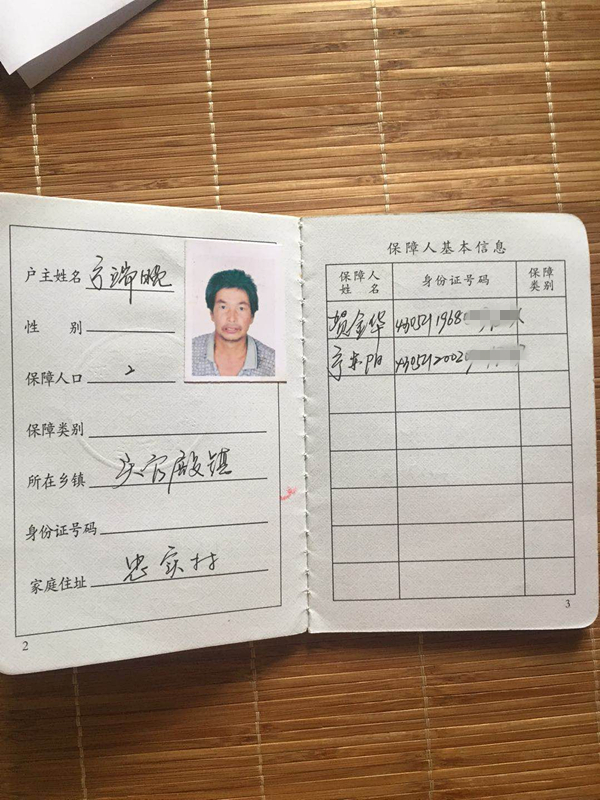 户主姓名 宁瑞晚
性 别
保障人口 2
保障类别
所在乡镇 火官殿镇
身份证号码
家庭住址 忠实村
2
保障人基本信息
保障人姓名 身份证号码 保障类别
贺金华 4305211968
宁东阳 4305212002
3